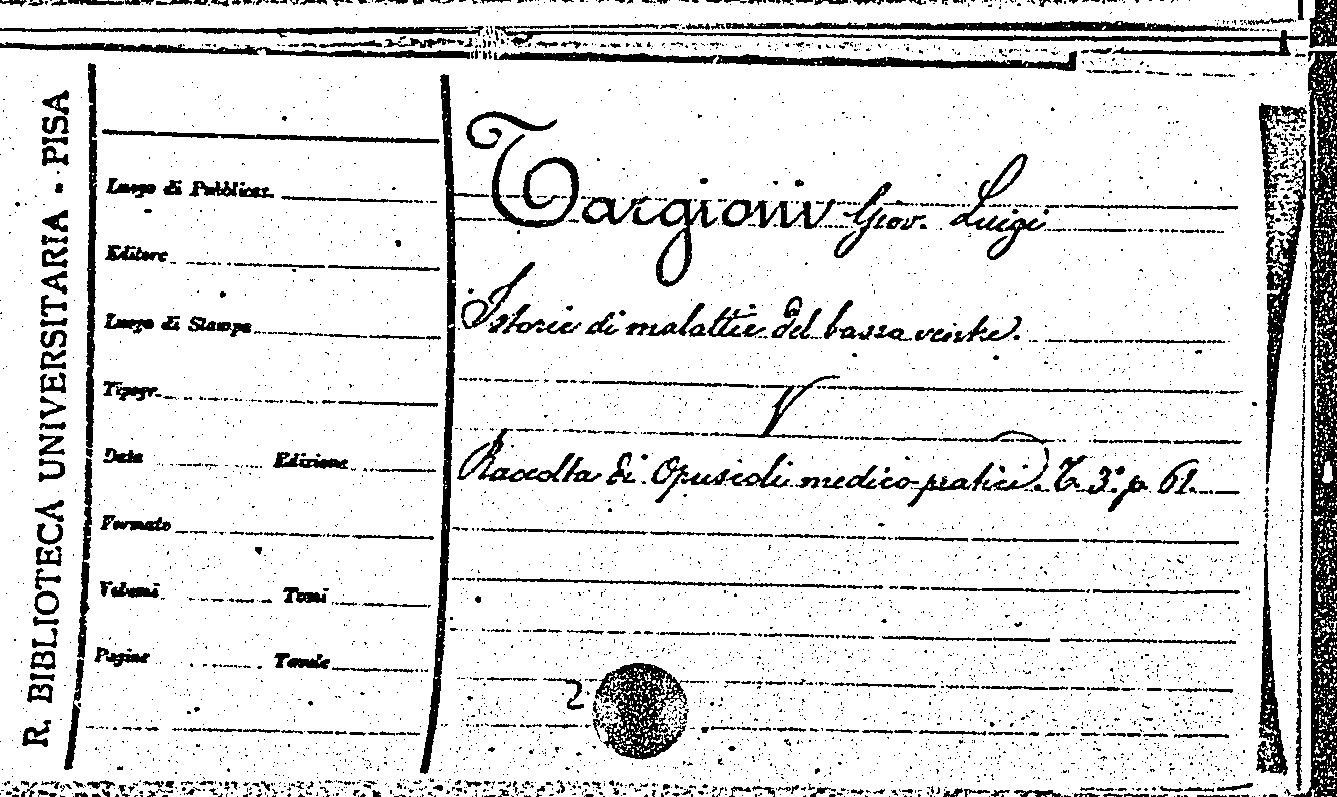 R. BIBLIOTECA UNIVERSITARIA - PISA
Luogo di Pubblicaz.
Editore
Luogo di Stampa
Tipogr.
Data Edizione
Formato
Volumi Tomi
Pagine Tavole
Targioni Giov. Luigi
Istorie di malattie del bassa ventre.
V
Raccolta di Opuscoli medico-pratici. T. 3.° p. 61.
2